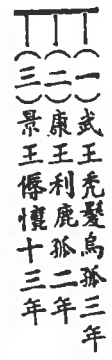 (一)武王禿髮烏孤三年
(二)康王利鹿孤二年
(三)景王傉檀十三年